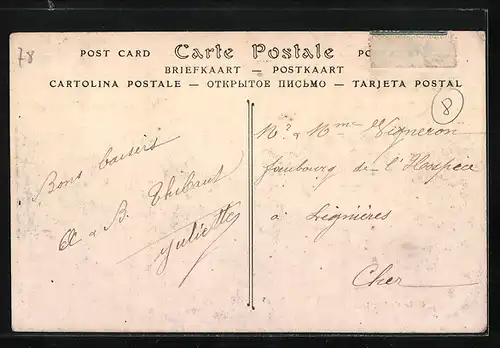 78
POST CARD Carte Postale PO
BRIEFKAART — POSTKAART
CARTOLINA POSTALE — ОТКРЫТОЕ ПИСЬМО — TARJETA POSTAL
8
Bons baisers
A & B. Thibaut
Juliette
Mr & Mme Vigneron
faubourg de l'Hospice
à Lignières
Cher